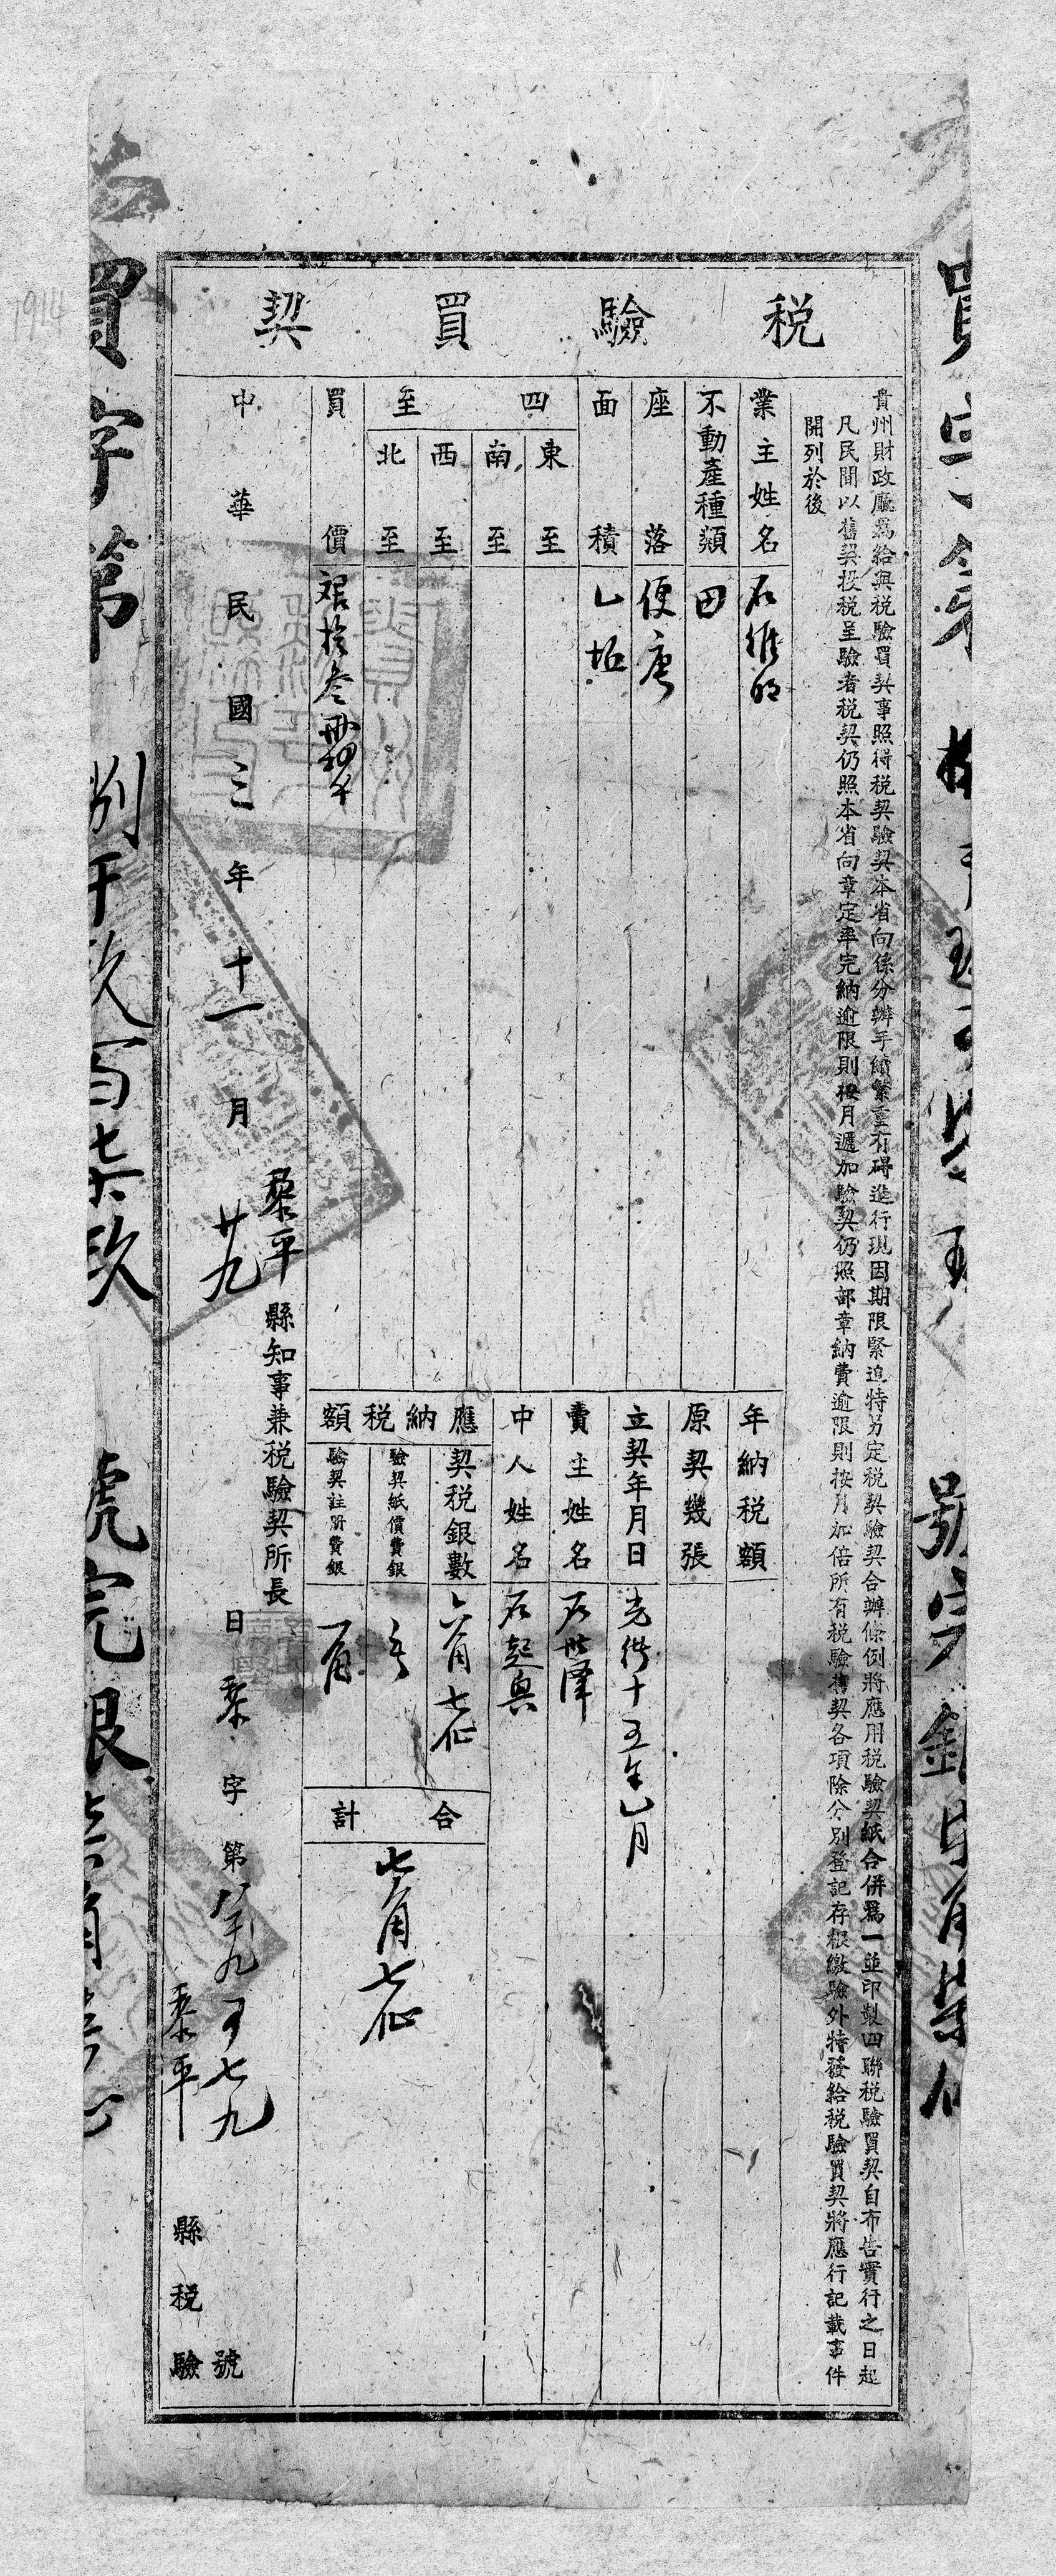 1914
稅驗買契
貴州財政廳爲給與稅驗買契事照得稅契驗契本省向係分辦手續繁重有碍進行現因期限緊迫特另定稅契驗契合辦條例將應用稅驗契紙合併爲一並印製四聯稅驗買契自布告實行之日起
凡民間以舊契投稅呈驗者稅契仍照本省向章定率完納逾限則按月遞加驗契仍照部章納費逾限則按月加倍所有稅驗舊契各項除分別登記存根繳驗外特發給稅驗買契將應行記載事件
開列於後
業主姓名 石維明
不動產種類 田
座落 便唐
面積 乚坵
四至
東至
南至
西至
北至
買價 銀拾叁兩
年納稅額
原契幾張
立契年月日 光緒十五年乚月
賣主姓名 石世澤
中人姓名 石起奧
應納稅額
契稅銀數 六角七仙
驗契紙價費銀
驗契註冊費銀 一角
合計 七角七仙
黎平縣知事兼稅驗契所長
中華民國三年十一月廿九日黎字第 號
黎平縣稅驗
買字第捌千玖百柒玖號完銀
買字第 號完銀